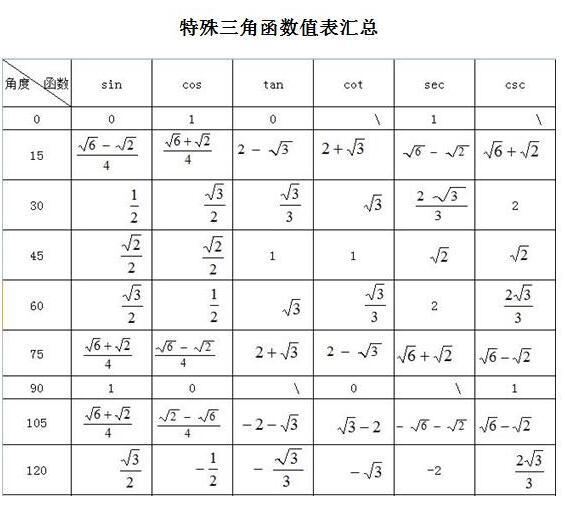 特殊三角函数值表汇总
角度 函数 sin cos tan cot sec csc
0 0 1 0 \ 1 \
15 (√6-√2)/4 (√6+√2)/4 2-√3 2+√3 √6-√2 √6+√2
30 1/2 √3/2 √3/3 √3 2√3/3 2
45 √2/2 √2/2 1 1 √2 √2
60 √3/2 1/2 √3 √3/3 2 2√3/3
75 (√6+√2)/4 (√6-√2)/4 2+√3 2-√3 √6+√2 √6-√2
90 1 0 \ 0 \ 1
105 (√6+√2)/4 (√2-√6)/4 -2-√3 √3-2 -√6-√2 √6-√2
120 √3/2 -1/2 -√3/3 -√3 -2 2√3/3